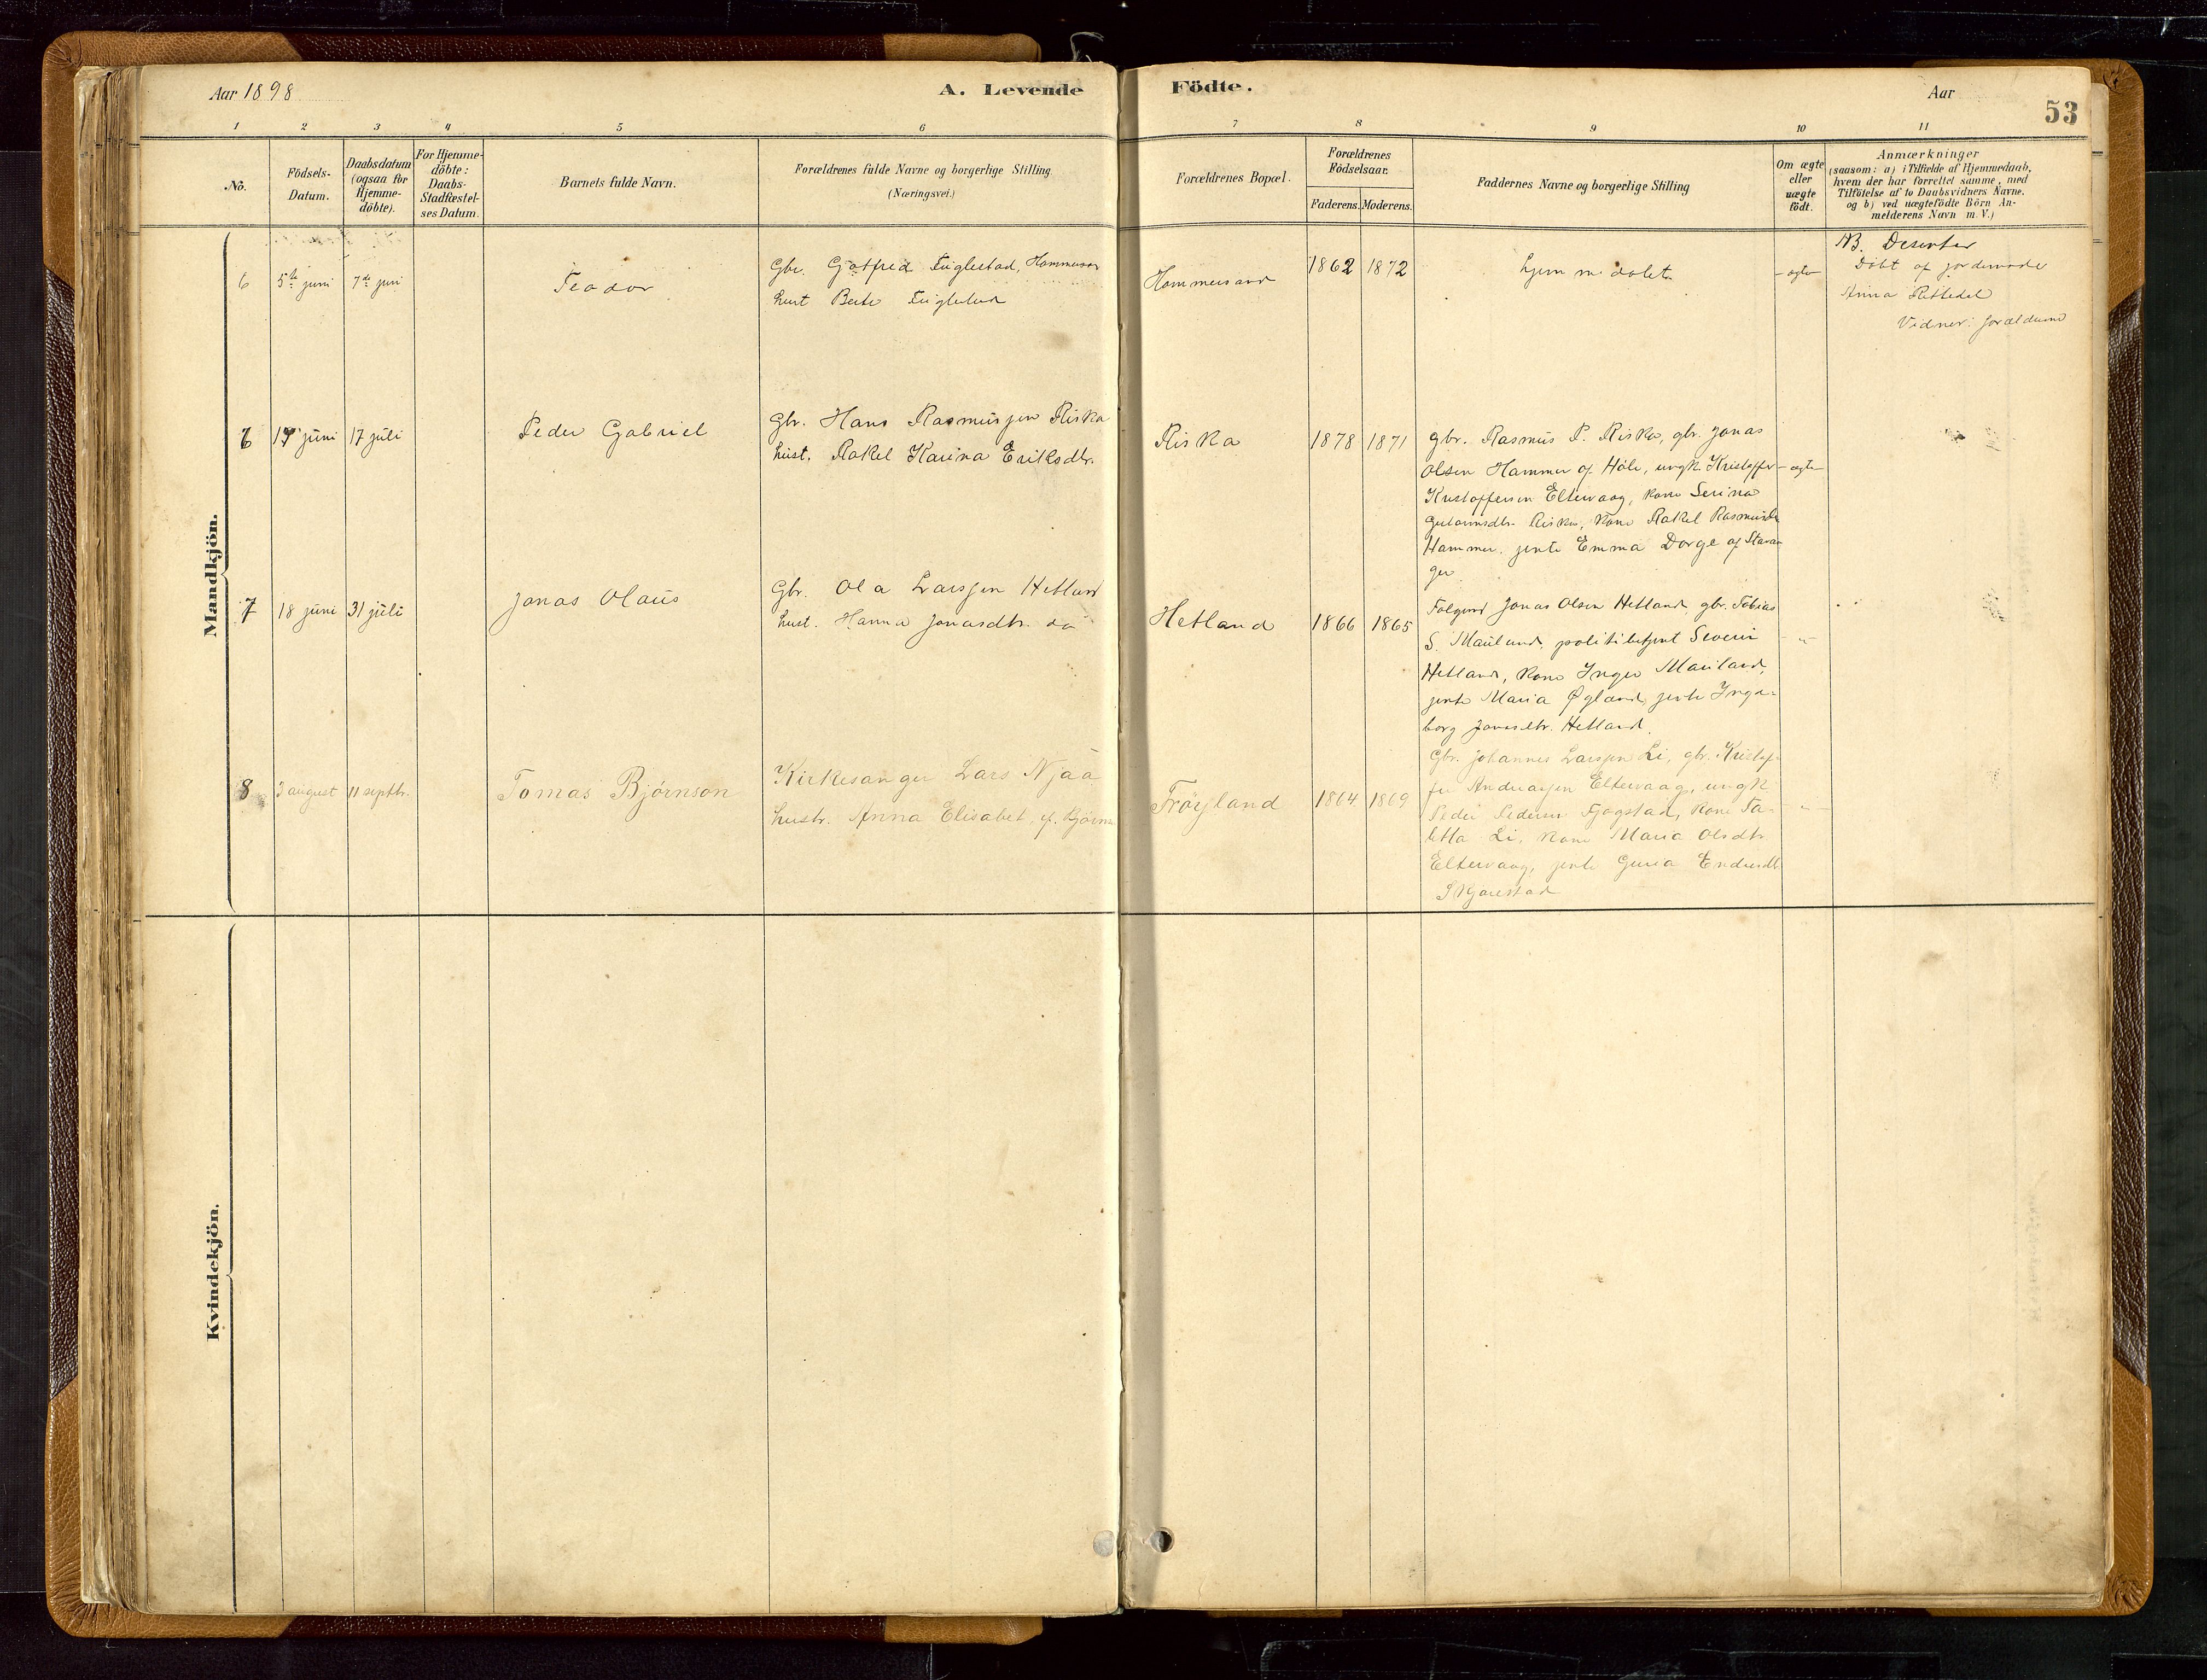 Aar 1898
A. Levende
Födte.
Aar
53
1
2
3
4
5
6
7
8
9
10
11
No.
Födsels-
Datum.
Daabsdatum
(ogsaa for
Hjemme-
döbte).
For Hjemme-
döbte:
Daabs-
Stadfæstel-
ses Datum.
Barnets fulde Navn.
Forældrenes fulde Navne og borgerlige Stilling
(Næringsvei.)
Forældrenes Bopæl.
Forældrenes
Födselsaar.
Faderens.
Moderens.
Faddernes Navne og borgerlige Stilling
Om ægte
eller
uægte
födt.
Anmærkninger
(saasom: a) i Tilfælde af Hjemmedaab,
hvem der har forrettet samme, med
Tilföielse af to Daabsvidners Navne,
og b) ved uægtefödte Börn An-
melderens Navn m. V.)
Mandkjön.
6
5te juni
7de juni
Teodor
Gbr. Gotfred Fuglestad, Hommersan
hust Berte Fuglestad
Hommersand
1862
1872
hjemmedøbt
- ægte
NB. Desenter
Døbt af jordemode
Anna Rettedel
Vidner: forældrene
6
17 juni
17 juli
Peder Gabriel
Gbr. Hans Rasmussen Riska
hust. Rakel Karina Eriksdtr.
Riska
1878
1871
gbr. Rasmus P. Riska, gbr. Jonas
Olsen Hammer af Høle, ungk. Kristoffer
Kristoffersen Eltervaag, kone Serina
Gustavnsdtr. Riska, kone Rakel Rasmusdtr
Hammer, jente Emma Dorge af Stavan-
ger
- ægte
7
18 juni
31 juli
Jonas Olaus
Gbr. Ola Larssen Hetland
hust. Hanna Jonasdtr. do
Hetland
1866
1865
Folgem Jonas Olsen Hetland, gbr. Tobias
S. Mauland, politibetjent Severin
Hetland, kone Inger Mauland,
jente Maria Øgland, jente Inge-
borg Jonasdtr. Hetland.
- " -
8
3 august
11 septbr.
Tomas Bjørnson
Kirkesanger Lars Njaa
hustr. Anna Elisabet, f. Bjørns
Frøyland
1864
1869
Gbr. Johannes Larssen Li, gbr. Kristof-
fer Andreassen Eltervaag, ungk.
Peder Pedersen Fjogstad, kone Ta-
letta Li, kone Maria Olsdtr.
Eltervaag, jente Guria Endresdtr
Skjærestad
- " -
Kvindekjön.